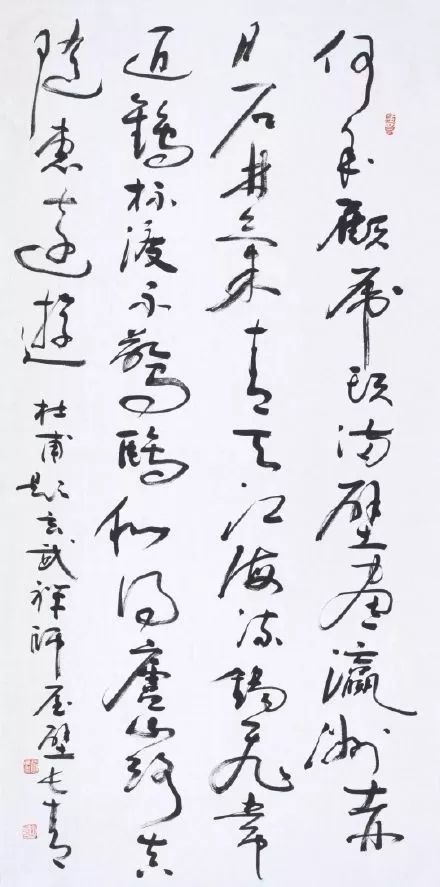 何年顧虎頭滿壁畫瀛洲赤
日石林氣青天江海流錫飛常
近鶴杯渡不驚鷗似得廬山路真
隨惠遠遊 杜甫題玄武禪師屋壁